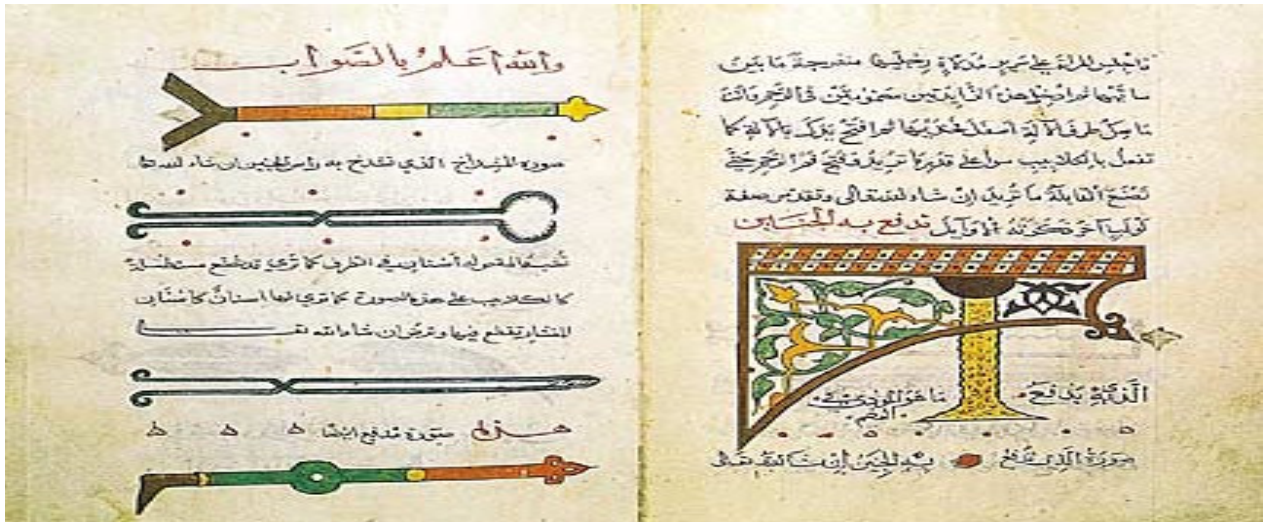 فاجلس المراة على سرير مدلاة رجليها منفرجة ما بين
ساقيها ثم ادخل الزايدتين مضمومتين في الرحم وانت
ماسك طرف الالة اسفل فخذيها ثم افتح يدك بالالة كما
تفعل بالكلاليب سوا على قدر ما تريد فتح فم الرحم حتى
تصنع القابلة ما تريد ان شاء الله تعالى وتقدم صفة
لولب اخر ذكرته الاوايل تدفع به الجنين
الذي يدفع ما هو
صورة الذي تدفع به الجنين ان شا الله تعالى
والله اعلم بالصواب
صورة المشداخ الذي تشدخ به راس الجنين ان شاء الله تعا
اسنان في الطرف كما ترى قد تصنع مستطيلة
كالكلاليب على هذه الصورة كما ترى لها اسنان كاسنان
المنشار يقطع فيها وترض ان شاء الله تعا
هذه صورة مدفع ايضا